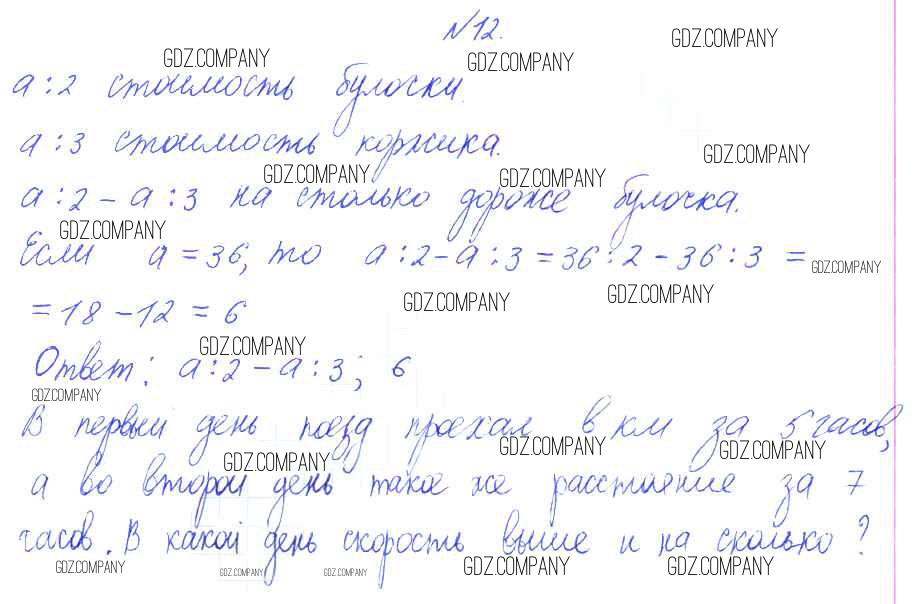 №12.
GDZ.COMPANY GDZ.COMPANY GDZ.COMPANY
а:2 стоимость булочки.
а:3 стоимость коржика.
GDZ.COMPANY GDZ.COMPANY GDZ.COMPANY
а:2 - а:3 на столько дороже булочка.
GDZ.COMPANY
Если а = 36, то а:2 - а:3 = 36:2 - 36:3 =
GDZ.COMPANY
= 18 - 12 = 6
GDZ.COMPANY GDZ.COMPANY
GDZ.COMPANY
Ответ: а:2 - а:3; 6
GDZ.COMPANY
В первый день поезд проехал в км за 5 часов,
GDZ.COMPANY GDZ.COMPANY GDZ.COMPANY
а во второй день такое же расстояние за 7
часов. В какой день скорость выше и на сколько?
GDZ.COMPANY GDZ.COMPANY GDZ.COMPANY GDZ.COMPANY GDZ.COMPANY